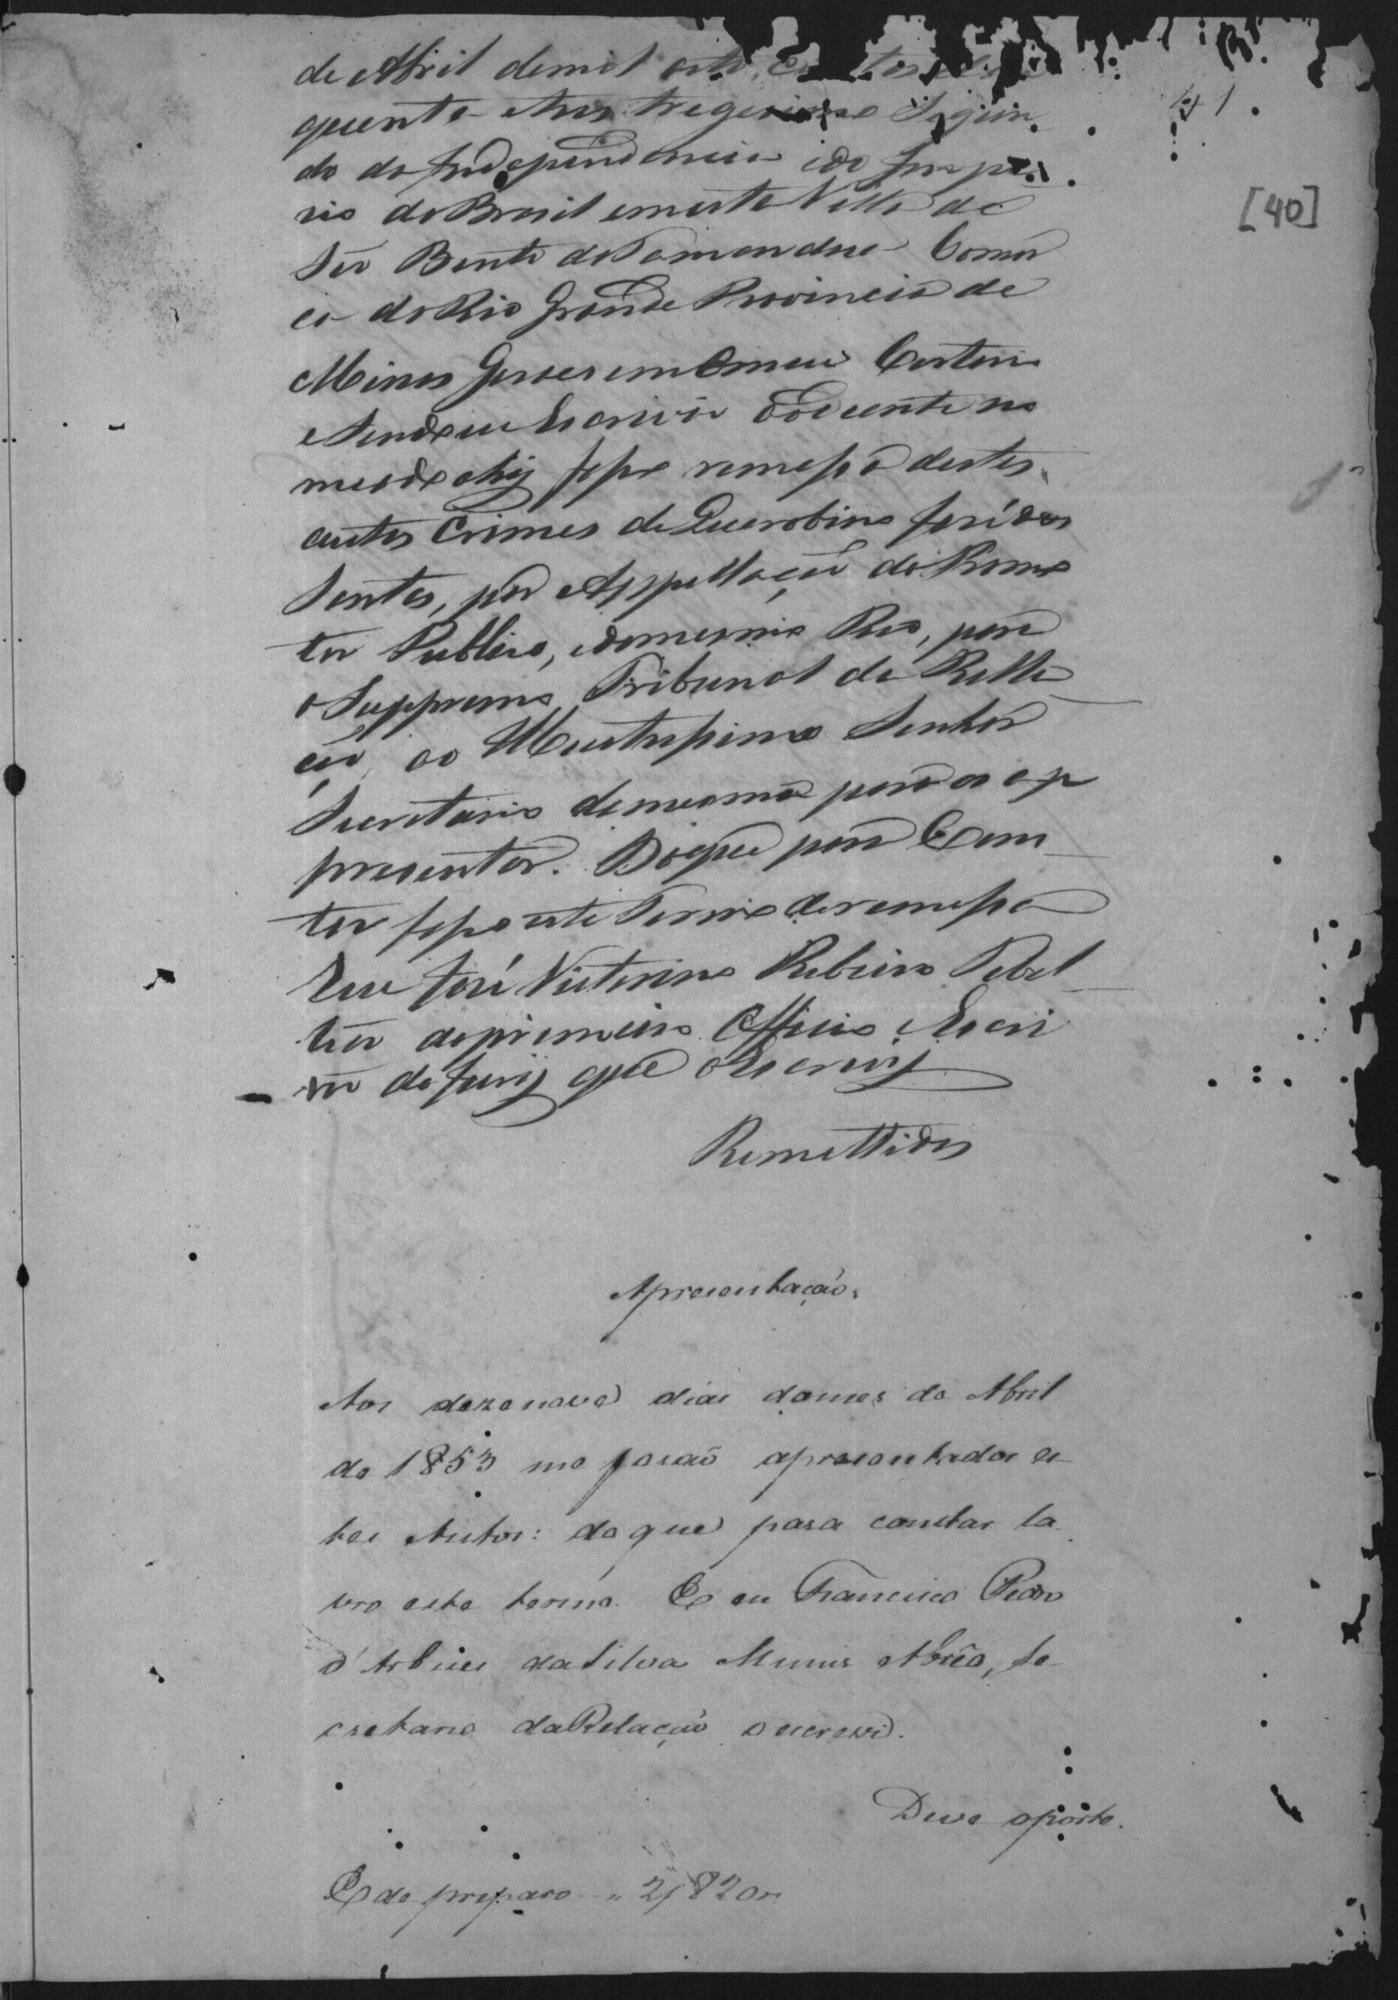 de Abril demil oito Centos e
quenta e tres trigesimo Segun
do da Independencia edo Impe
rio do Brasil em esta Villa de
São Bento do Tamandua Comar
ca do Rio Grande Provincia de
Minas Geraes em Omeu Cartorio
e Sendo eu Escrivão adiante no
meado ahy fiz remessa destes
autos Crimes de Querobino
Santos, por Appellação do Promo
tor Publico, edomesmo Reo, para
o Supremo Tribunal da Rella
ção ao Illustrissimo Senhor
Secretario damesma para os ap
presentar. Doque para Cons
tar fiz este Termo deremessa
Eu José Victorino Ribeiro Tabel
lião doprimeiro Officio e Escri
vão do Jury que oEscrevy
Remettidos
41
[40]
Apresentação.
Aos dezenove dias domes de Abril
de 1853 me forão apresentados es
tes Autos: do que para constar la
vro este termo. E eu Francisco Pedro
d'Arbues da Silva Munis Abrêo, Se
cretario da Relação o escrevi.
Deve oporte.
E do preparo 2$820rs